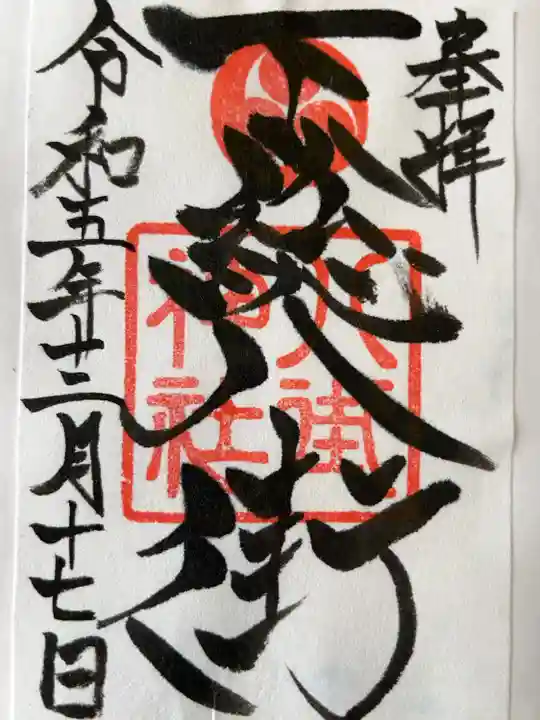 奉拝
下総八街
八街
神社
令和五年十二月十七日